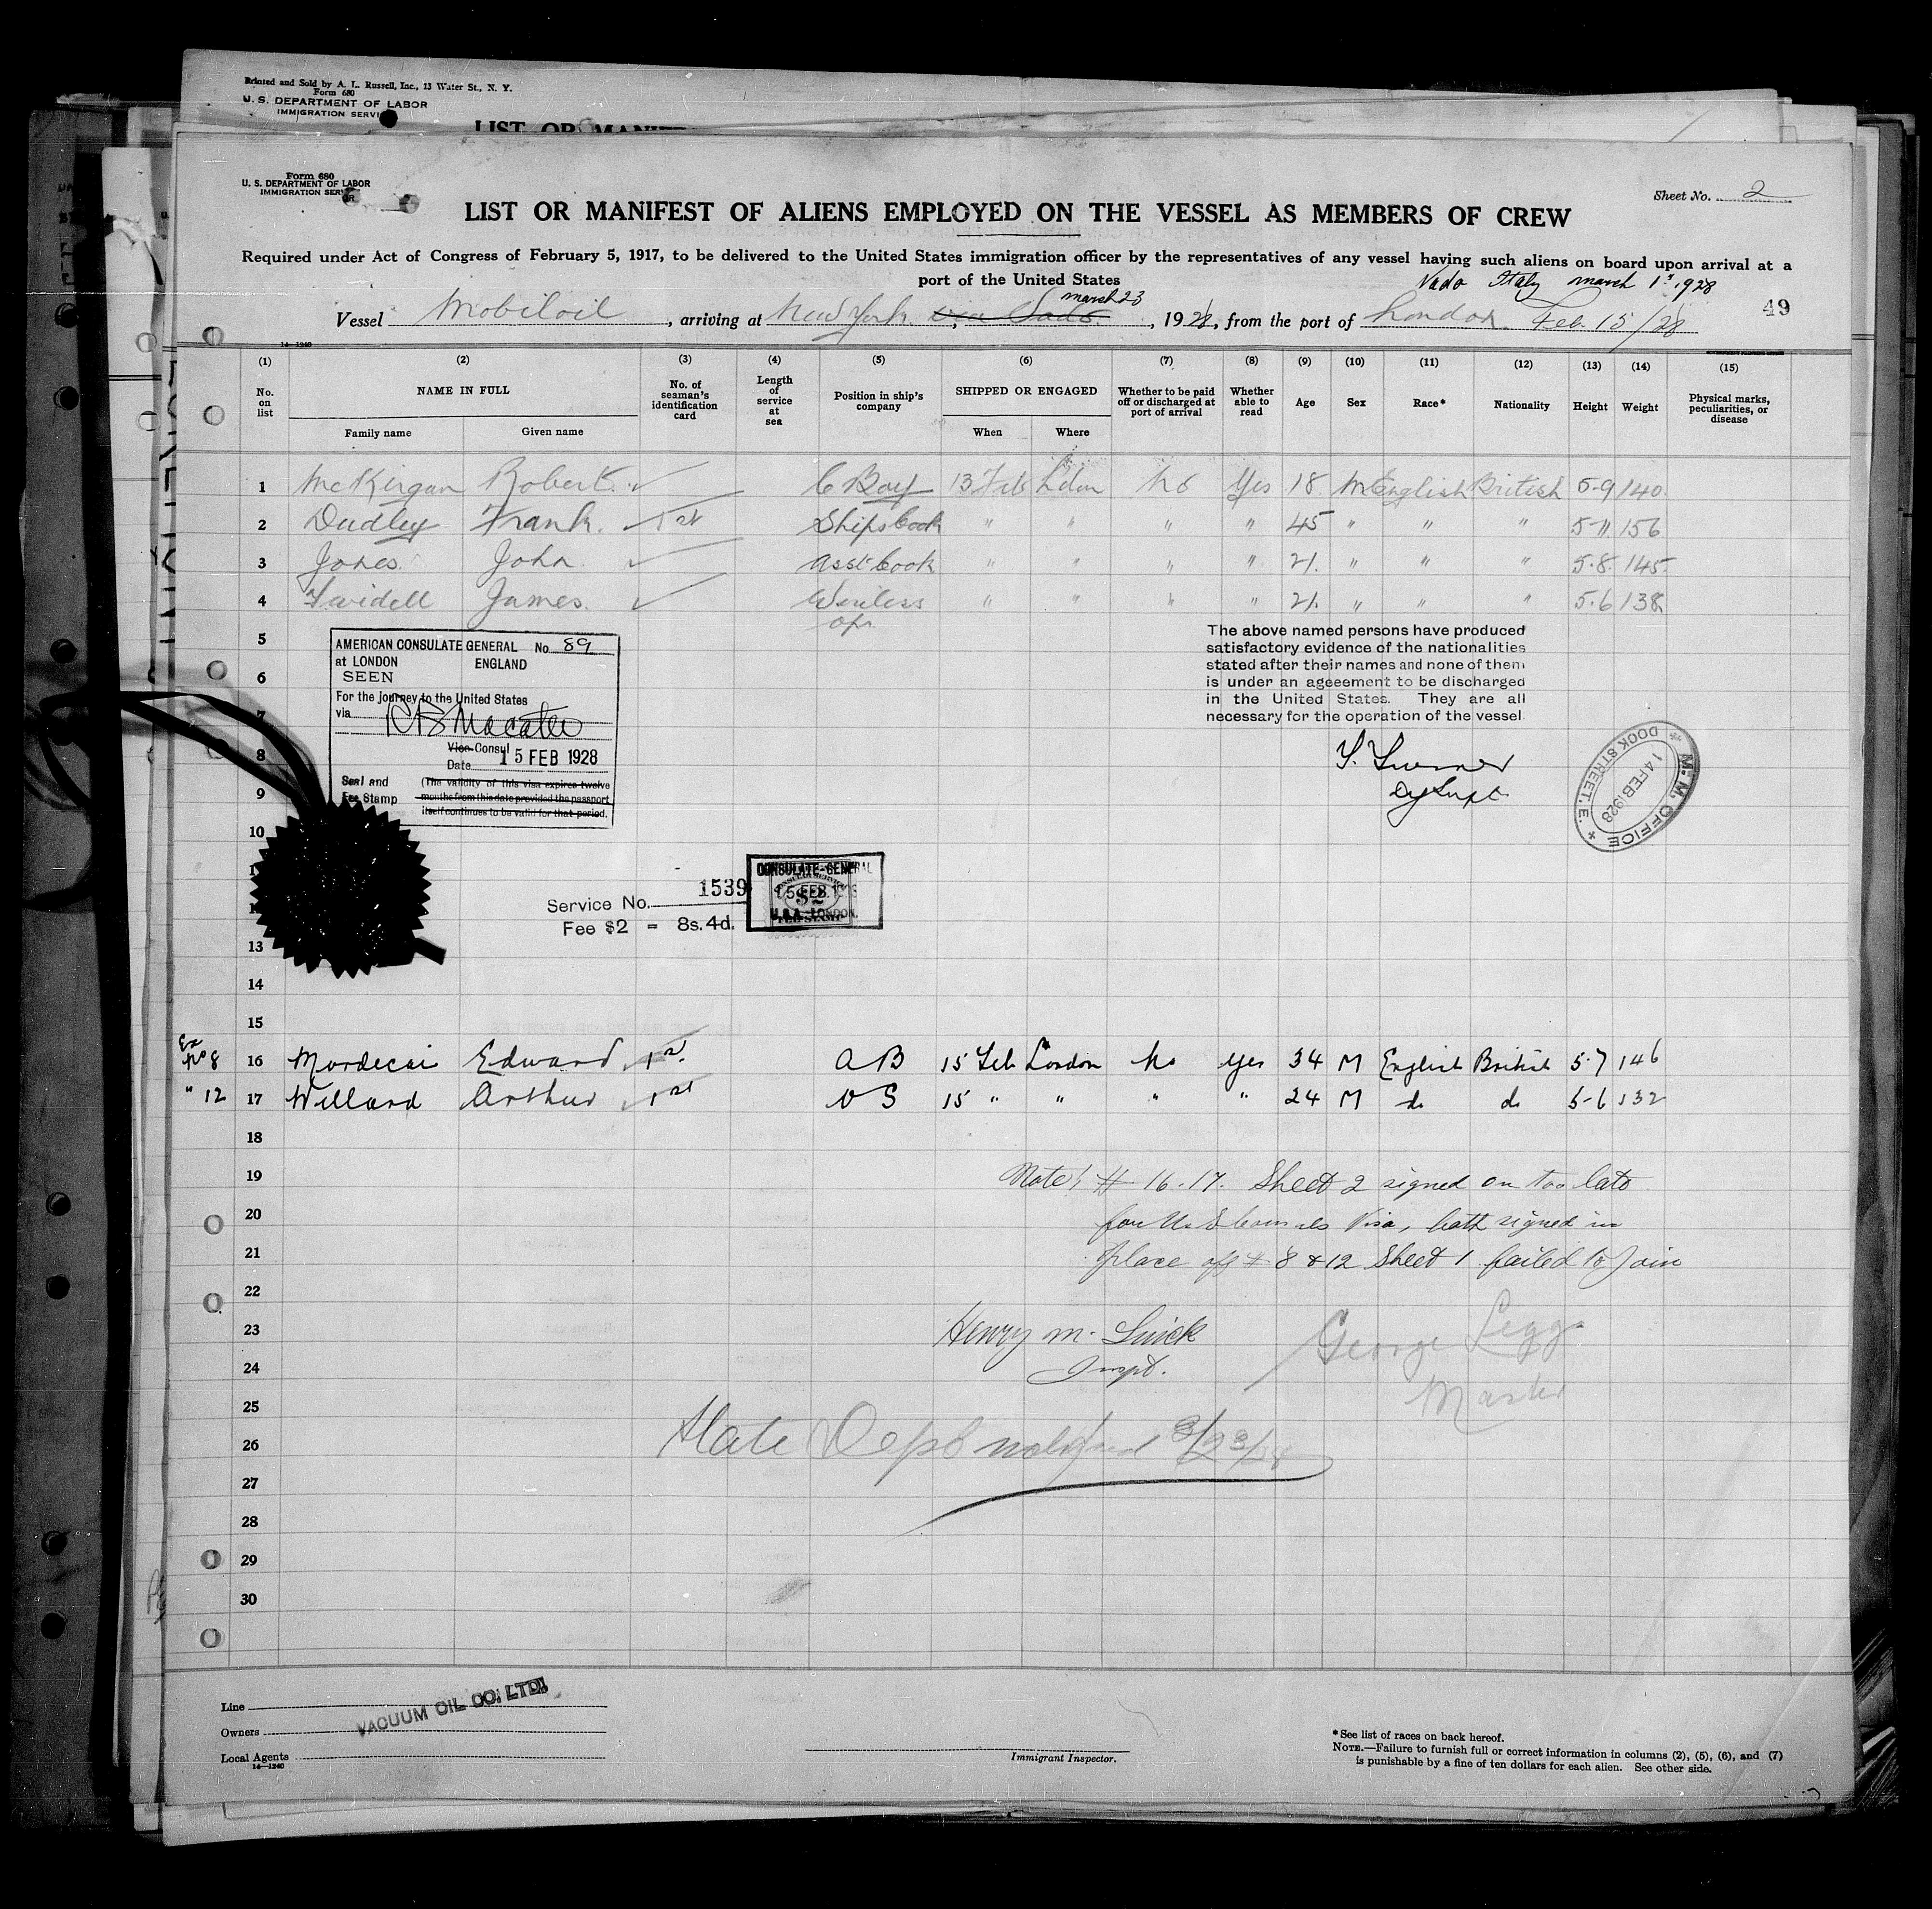 Printed and Sold by A. L. Russell, Inc., 13 Water St., N. Y.
Form 680
U. S. DEPARTMENT OF LABOR
IMMIGRATION SERVI
LIST OR MANI
Form 680
U. S. DEPARTMENT OF LABOR
IMMIGRATION SERV
Sheet No. 2
LIST OR MANIFEST OF ALIENS EMPLOYED ON THE VESSEL AS MEMBERS OF CREW
Required under Act of Congress of February 5, 1917, to be delivered to the United States immigration officer by the representatives of any vessel having such aliens on board upon arrival at a
port of the United States
Vado Italy march 1st 1928
march 23
Vessel Mobiloil, arriving at New York via Vado, 1928, from the port of London Feb. 15/28
49
14-1240
(1) (2) (3) (4) (5) (6) (7) (8) (9) (10) (11) (12) (13) (14) (15)
No. on list
NAME IN FULL
Family name
Given name
No. of seaman's identification card
Length of service at sea
Position in ship's company
SHIPPED OR ENGAGED
When
Where
Whether to be paid off or discharged at port of arrival
Whether able to read
Age
Sex
Race*
Nationality
Height
Weight
Physical marks, peculiarities, or disease
1 McKirgan Robert. C Boy 13 Feb Ldon No Yes 18 M English British 5-9 140
2 Dudley Frank. 1st Ships Cook " " " " 45 " " " 5-11 156
3 Jones John Asst Cook " " " " 21. " " " 5.8. 145
4 Twidell James. Wireless " " " " 21. " " " 5.6 138
Opr.
5
6
7
8
9
10
AMERICAN CONSULATE GENERAL No. 89
at LONDON ENGLAND
SEEN
For the journey to the United States
via
Vice Consul
Date 15 FEB 1928
Seal and
Fee Stamp
(The validity of this visa expires twelve
months from this date provided the passport
itself continues to be valid for that period.
The above named persons have produced
satisfactory evidence of the nationalities
stated after their names and none of them
is under an ageeement to be discharged
in the United States. They are all
necessary for the operation of the vessel
Dy Supt.
M. M. OFFICE
14 FEB 1928
DOCK STREET, E.
Service No. 1539
Fee $2 = 8s. 4d.
CONSULATE-GENERAL
15 FEB 1928
$2
U.S.A. LONDON.
FEE STAMP
13
14
15
Ex No 8 16 Mordecai Edward 1st A B 15 Feb London No Yes 34 M English British 5-7 146
" 12 17 Willard Arthur 1st O S 15 " " " " 24 M do do 5-6 132
18
19 Note! # 16-17. Sheet 2 signed on too late
20 for U S Consuls Visa, both signed in
21 place of # 8 & 12 Sheet 1 failed to Join
22
23 Henry M. George Legg
24 Inspt. Master
25
26 State Dept notified 3/23/28
27
28
29
30
Line
VACUUM OIL CO. LTD.
Owners
Local Agents
14—1240
Immigrant Inspector.
*See list of races on back hereof.
NOTE.—Failure to furnish full or correct information in columns (2), (5), (6), and (7)
is punishable by a fine of ten dollars for each alien. See other side.